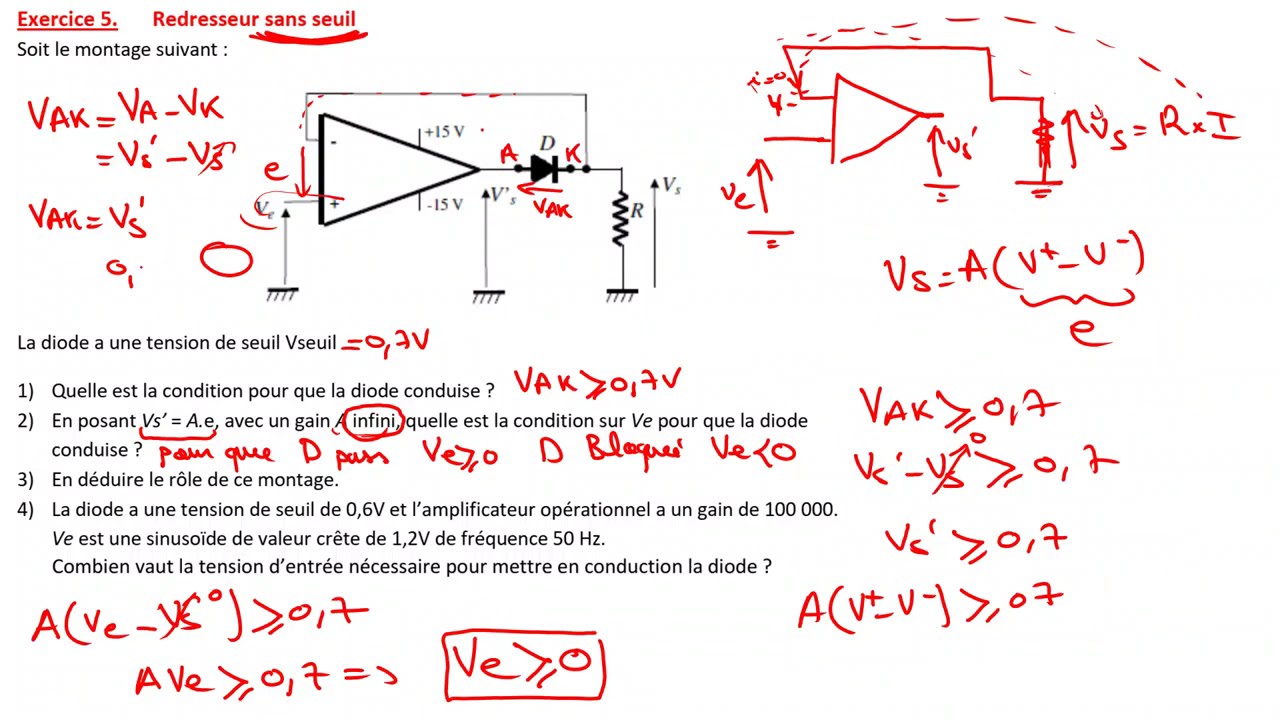 Exercice 5. Redresseur sans seuil
Soit le montage suivant :
VAK = VA - VK
= Vs' - Vs
VAK = Vs'
0,
e
Ve
-
+
+15 V
-15 V
A
D
K
V's
VAK
R
Vs
i=0
V-
ve
vs'
Vs = R x I
Vs = A(V+ - V-)
e
La diode a une tension de seuil Vseuil = 0,7V
1) Quelle est la condition pour que la diode conduise ? VAK ⩾ 0,7V
2) En posant Vs' = A.e, avec un gain A infini, quelle est la condition sur Ve pour que la diode
conduise ? pour que D pass Ve ⩾ 0 D Bloqué Ve < 0
3) En déduire le rôle de ce montage.
4) La diode a une tension de seuil de 0,6V et l'amplificateur opérationnel a un gain de 100 000.
Ve est une sinusoïde de valeur crête de 1,2V de fréquence 50 Hz.
Combien vaut la tension d'entrée nécessaire pour mettre en conduction la diode ?
VAK ⩾ 0,7
Vs' - Vs 0 ⩾ 0,7
Vs' ⩾ 0,7
A(V+ - V-) ⩾ 07
A(Ve - Vs 0) ⩾ 0,7
AVe ⩾ 0,7 => Ve ⩾ 0